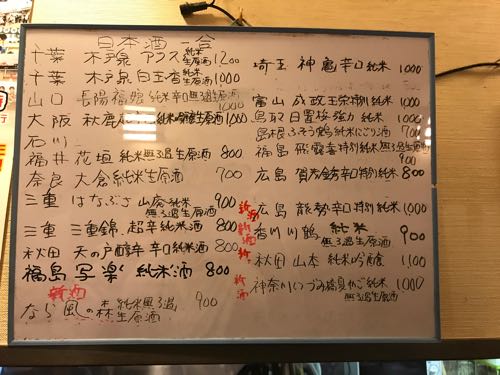 日本酒 一合
千葉 木戸泉 アフス 純米生原酒 1200
千葉 木戸泉 白玉香 純米生原酒 1000
山口 長陽福娘 純米辛口無濾過原酒 1000
大阪 秋鹿 純米吟醸生原酒 1000
石川
福井 花垣 純米無ろ過生原酒 800
奈良 大倉 純米生原酒 700
三重 はなぶさ 山廃純米無ろ過生原酒 900
三重 三重錦 超辛純米酒 800
秋田 天の戸醇辛 辛口純米酒 800
福島 写楽 純米酒 800
新酒
なら 風の森 純米無ろ過生原酒 900
埼玉 神亀辛口純米 1000
富山 成政王栄特別純米 1000
鳥取 日置桜 強力 純米 1000
島根 ふそう鶴 純米にごり酒 700
福島 飛露喜特別純米生原酒 900
広島 賀茂金秀辛口特別純米 800
新酒 広島 龍勢辛口特別純米 1000
新酒 香川 川鶴 純米無ろ過生原酒 900
新 秋田 山本 純米吟醸 1,100
新酒 神奈川 いづみ橋夏ヤゴ純米無ろ過生原酒 1000